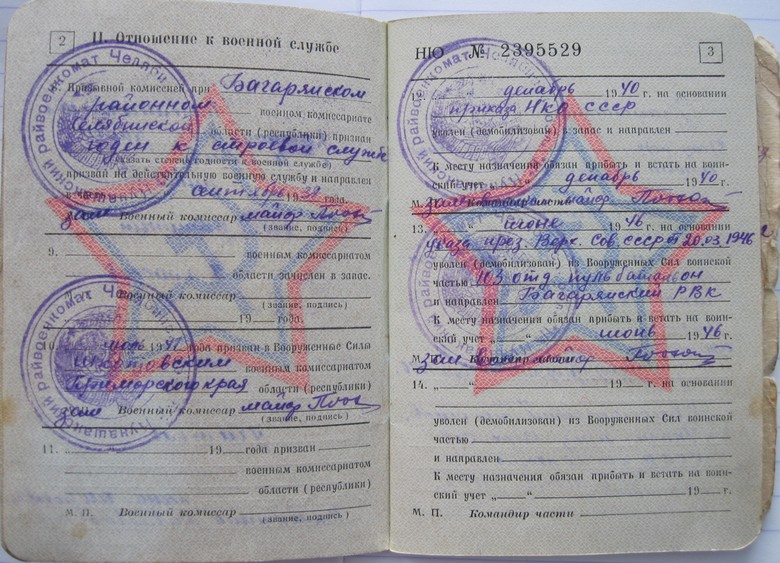 2 II. Отношение к военной службе
Призывной комиссией при Багарякском
районном военном комиссариате
Челябинской области (республики) признан
годен к строевой службе
(указать степень годности к военной службе)
призван на действительную военную службу и направлен
в часть сентябрь 1938 года.
зам Военный комиссар майор
(звание, подпись)
9. военным комиссариатом
области зачислен в запас.
Военный комиссар
(звание, подпись)
19 года.
10. 1941 года призван в Вооруженные Силы
Шкотовским военным комиссариатом
Приморского края области (республики)
зам Военный комиссар майор
(звание, подпись)
11. 19 года призван
военным комиссариатом
области (республики)
М. П. Военный комиссар
(звание, подпись)
НЮ № 2395529 3
12. декабрь 1940 г. на основании
приказа НКО СССР
уволен (демобилизован) в запас и направлен
К месту назначения обязан прибыть и встать на воин-
ский учет декабрь 1940 г.
М. П. зам Командир части майор
13. июне 1946 г. на основании
указа през. Верх. Сов. СССР от 20.03.1946 г
уволен (демобилизован) из Вооруженных Сил воинской
частью 103 отд. пульбатальон
и направлен Багарякский РВК
К месту назначения обязан прибыть и встать на воин-
ский учет „ “ июнь 1946 г.
М. П. зам Командир части майор
14. „ “ 19 г. на основании
уволен (демобилизован) из Вооруженных Сил воинской
частью
и направлен
К месту назначения обязан прибыть и встать на воин-
ский учет „ “ 19 г.
М. П. Командир части